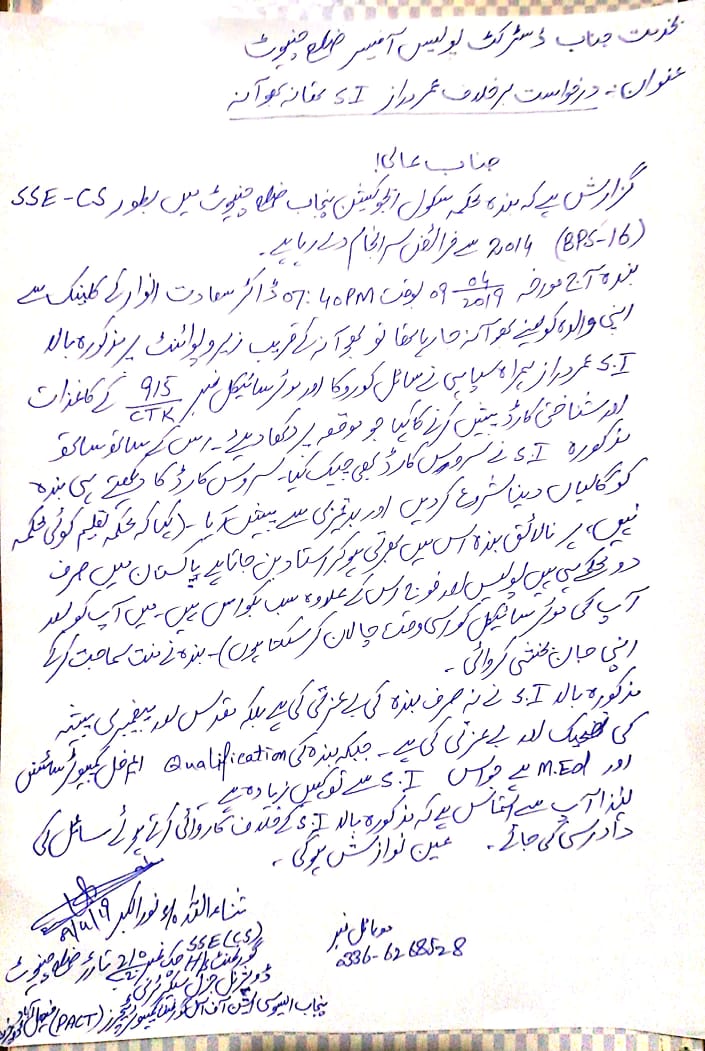 بخدمت جناب ڈسٹرکٹ پولیس آفیسر ضلع چنیوٹ
عنوان:۔ درخواست برخلاف عمر دراز S.I تھانہ بھوآنہ
جناب عالی!
گزارش ہے کہ بندہ محکمہ سکول ایجوکیشن پنجاب ضلع چنیوٹ میں بطور SSE-CS
(BPS-16) 2014 سے فرائض سرانجام دے رہا ہے۔
بندہ آج مورخہ 09 04/2019 بوقت 07:40PM ڈاکٹر سعادت انوار کے کلینک سے
اپنی والدہ کو لینے بھوآنہ جا رہا تھا تو بھوآنہ کے قریب زیرو پوائنٹ پر مذکورہ بالا
S.I عمر دراز ہمراہ سپاہی نے سائل کو روکا اور موٹر سائیکل نمبر 915/CTK کے کاغذات
اور شناختی کارڈ پیش کرنے کا کہا جو موقعہ پر دکھا دیئے۔ اس کے ساتھ ساتھ
مذکورہ S.I نے سروس کارڈ بھی چیک کیا۔ سروس کارڈ کا دیکھتے ہی بندہ
کو گالیاں دینا شروع کر دیں اور بدتمیزی سے پیش آیا۔ (کہا کہ محکمہ تعلیم کوئی محکمہ
نہیں، ہر نالائق بندہ اس میں بھرتی ہو کر استاد بن جاتا ہے پاکستان میں صرف
دو محکمے ہی ہیں پولیس اور فوج اس کے علاوہ سب بکواس ہیں۔ میں آپ کو اور
آپ کی موٹر سائیکل کو اسی وقت چالان کر سکتا ہوں)۔ بندہ نے منت سماجت کر کے
اپنی جان بخشی کروائی۔
مذکورہ بالا S.I نے نہ صرف بندہ کی بے عزتی کی ہے بلکہ مقدس اور پیغمبری پیشہ
کی تضحیک اور بے عزتی کی ہے۔ جبکہ بندہ کی Qualification ایم فل کمپیوٹر سائنس
اور M.Ed ہے جو اس S.I سے تو کہیں زیادہ ہے
لہٰذا آپ سے التماس ہے کہ مذکورہ بالا S.I کے خلاف کاروائی کرتے ہوئے سائل کی
دادرسی کی جائے۔ عین نوازش ہوگی۔
ثناءاللہ ولد نور اکبر 9/4/19
SSE(CS)
گورنمنٹ H/S چک نمبر 210 ضلع چنیوٹ
ڈویژنل جنرل سیکرٹری
پنجاب ایسوسی ایشن آف کمپیوٹر ٹیچرز (PACT) فیصل آباد ڈویژن
موبائل نمبر
0336-6268528